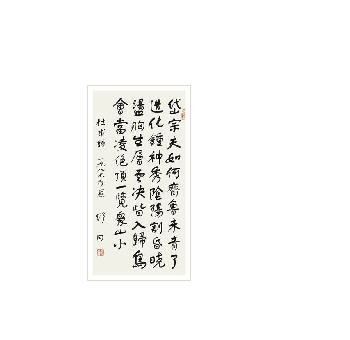 岱宗夫如何齊魯未青了
造化鐘神秀陰陽割昏曉
盪胸生層云決眥入歸鳥
會當凌絕頂一覽眾山小
杜甫詩 舒同